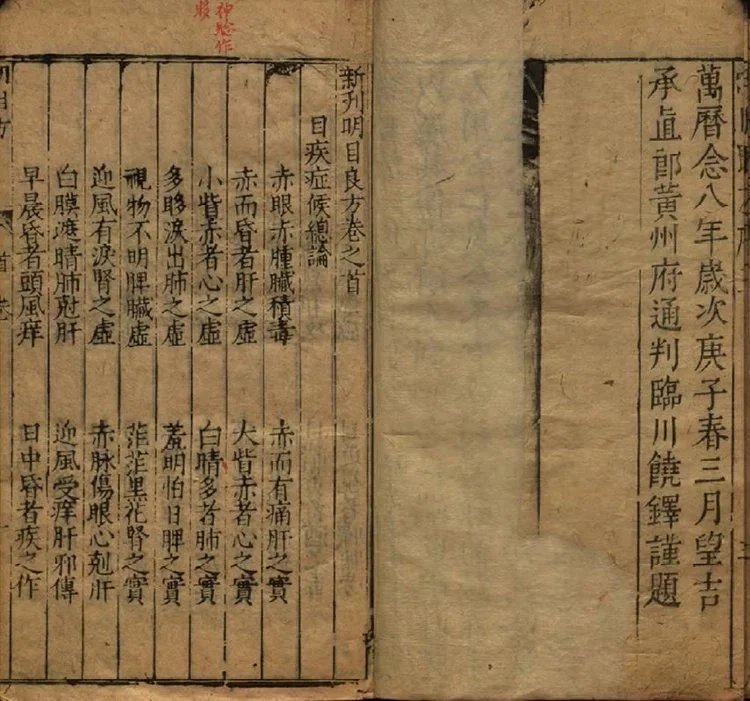 萬曆念八年歲次庚子春三月望吉
承直郎黃州府通判臨川饒鐸謹題
新刊明目良方卷之首
目疾症候總論
赤眼赤腫臟積毒 赤而有痛肝之實
赤而昏者肝之虛 大眥赤者心之實
小眥赤者心之虛 白睛多者肺之實
多眵淚出肺之虛 羞明怕日脾之實
視物不明脾臟虛 茫茫黑花腎之實
迎風有淚腎之虛 赤脉傷眼心剋肝
白膜遮睛肺尅肝 迎風受痒肝邪傳
早晨昏者頭風痒 日中昏者疾之作